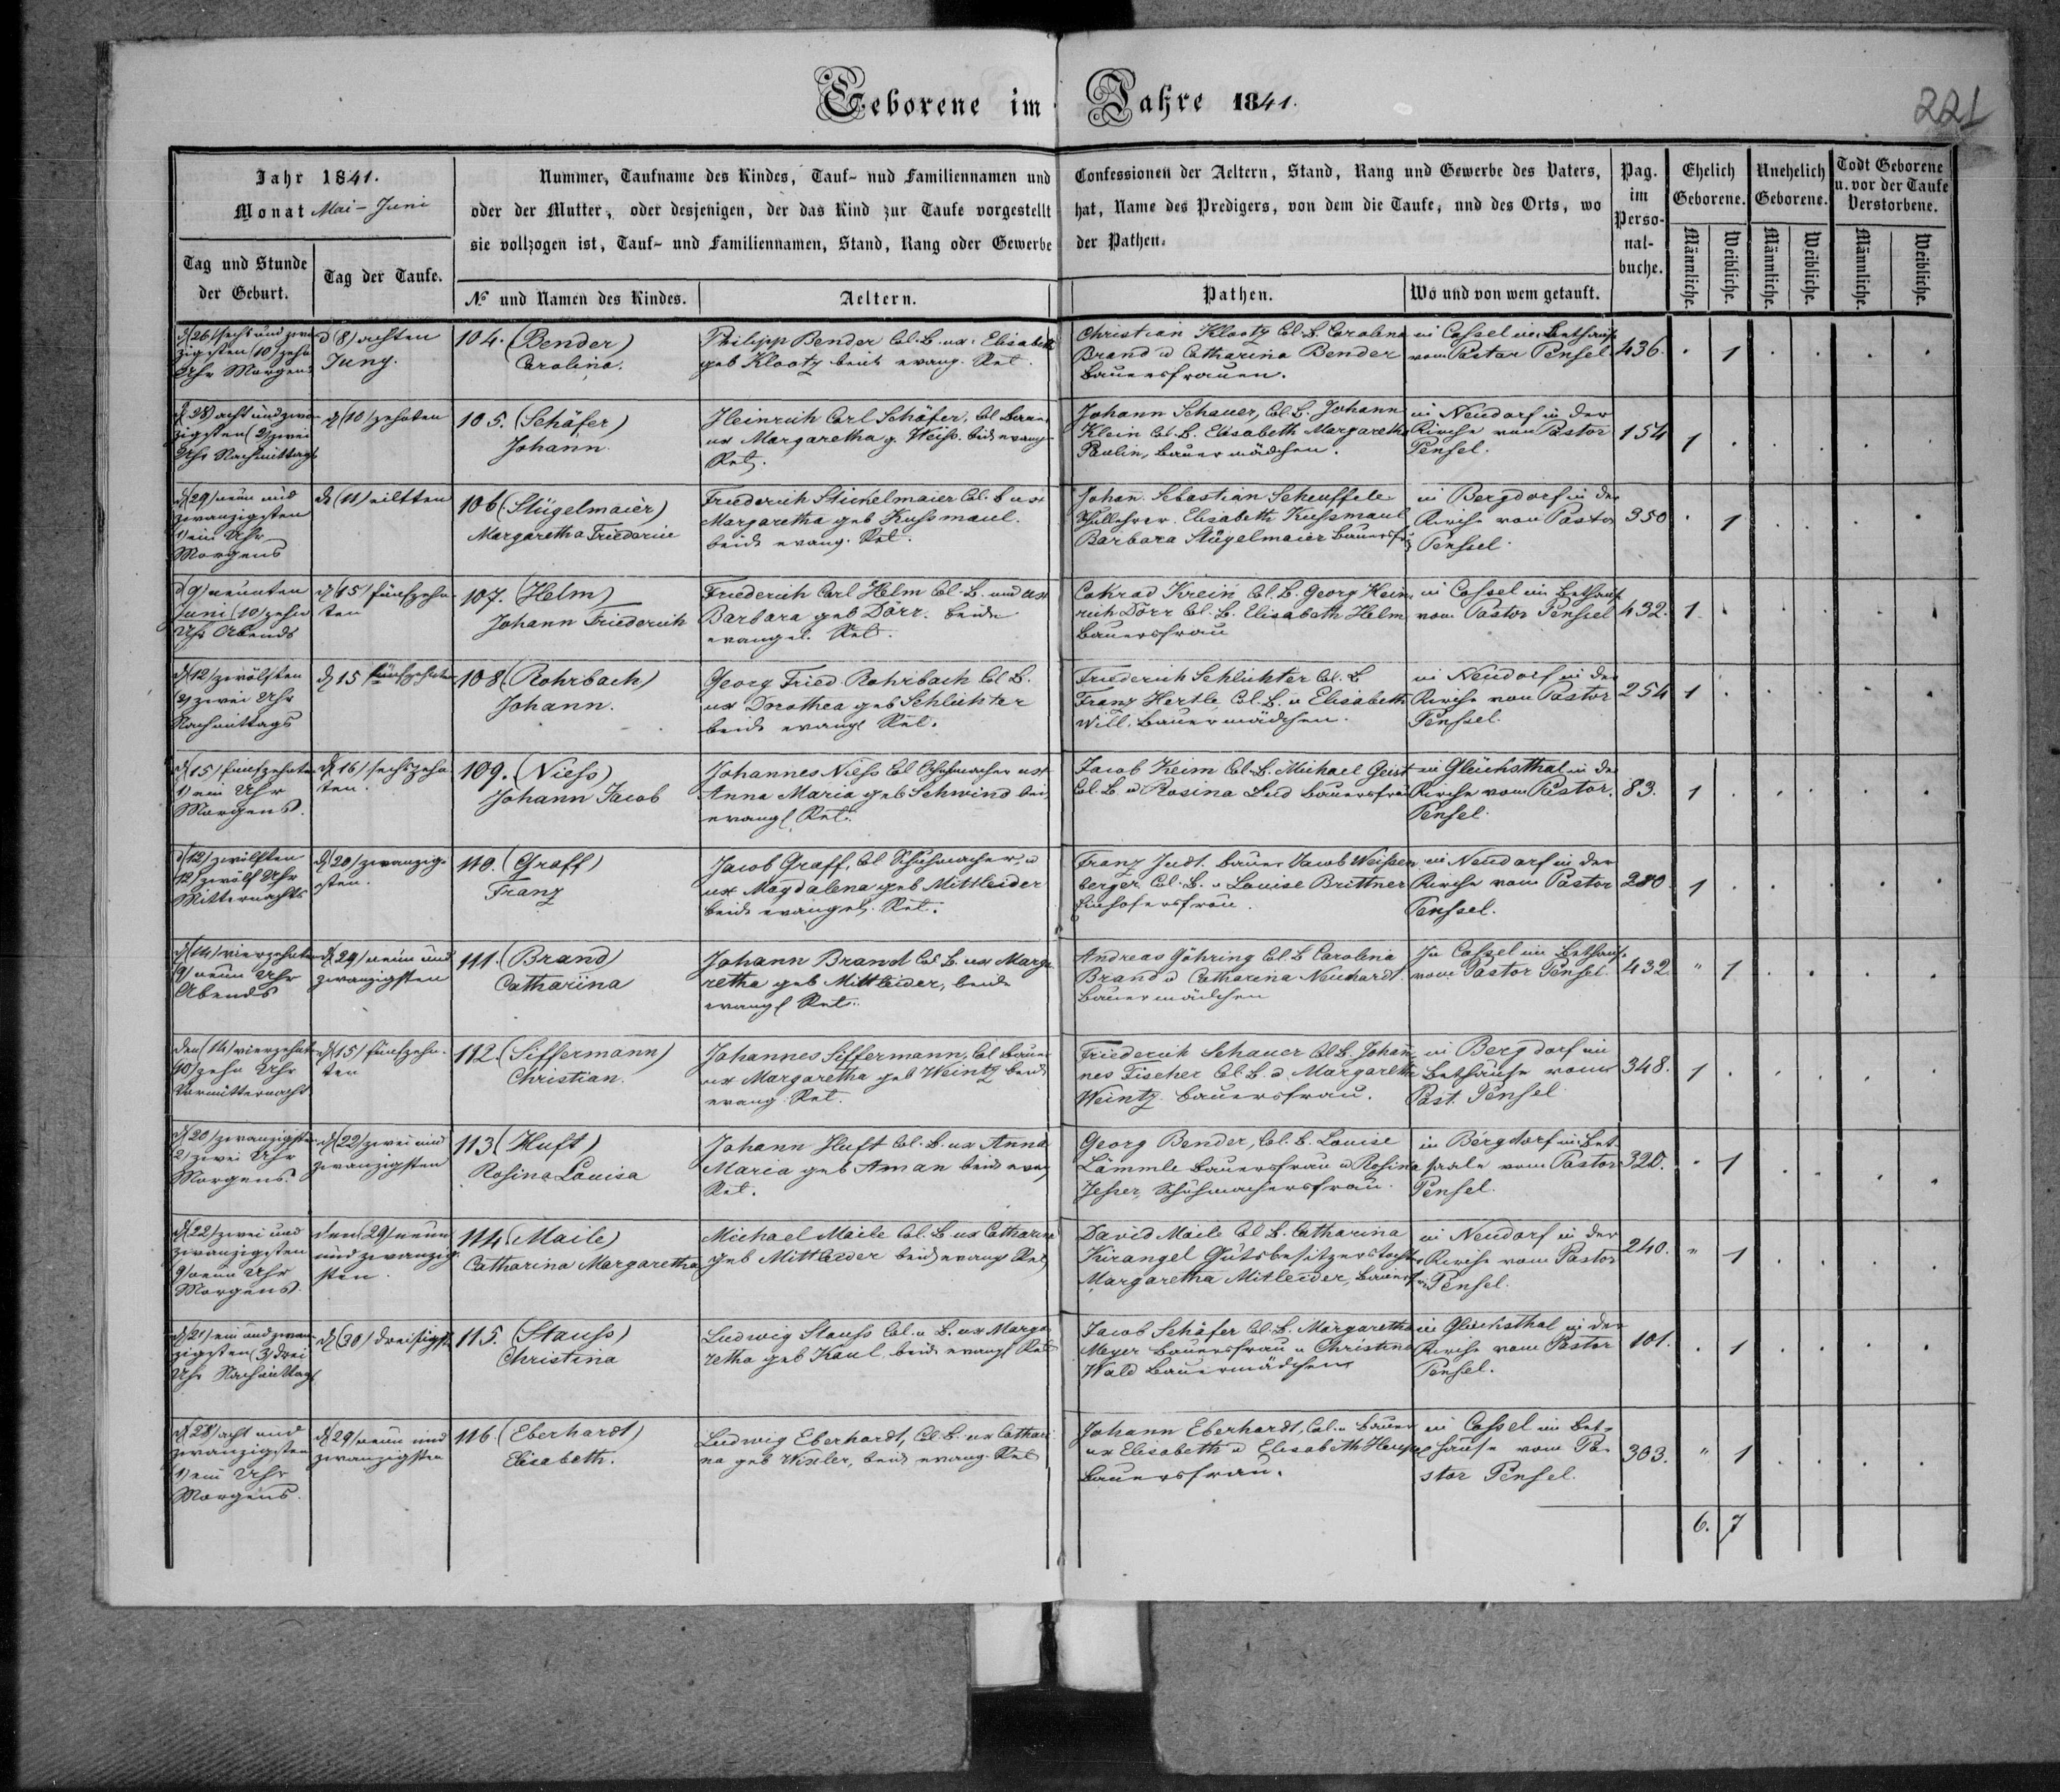 Geborene im Jahre 1841.
221
Jahr 1841.
Monat Mai - Juni
Tag und Stunde der Geburt.
Tag der Taufe.
Nummer, Taufname des Kindes, Tauf- nud Familiennamen und
oder der Mutter, oder desjenigen, der das Kind zur Taufe vorgestellt
sie vollzogen ist, Tauf- und Familiennamen, Stand, Rang oder Gewerbe
№ und Namen des Kindes.
Aeltern.
Confessionen der Aeltern, Stand, Rang und Gewerbe des Vaters,
hat, Name des Predigers, von dem die Taufe, und des Orts, wo
der Pathen.
Pathen.
Wo und von wem getauft.
Pag. im Perso-nal-buche.
Ehelich Geborene.
Unehelich Geborene.
Todt Geborene u. vor der Taufe Verstorbene.
Männliche.
Weibliche.
Männliche.
Weibliche.
Männliche.
Weibliche.
d (26) sechs und zwan
zigsten (10) zehn
Uhr Morgens
d (8) achten
Juny.
104. (Bender)
Carolina.
Philipp Bender Col. B. ux. Elisabeth
geb Klootz beide evang. Rel.
Christian Klootz Col. B. Carolina
Brand u Catharina Bender
Bauersfrauen.
in Cassel im Bethause
vom Pastor Pensel
436. . 1 . . . .
d (28) acht und zwan
zigsten (2) zwei
Uhr Nachmittags
d (10) zehnten
105. (Schäfer)
Johann.
Heinrich Carl Schäfer, Col Bauer
ux Margaretha g. Weiss. beide evang
Rel.
Johann Schauer, Col. B. Johann
Klein Col. B. Elisabeth Margaretha
Paulin, Bauermädchen.
in Neudorf in der
Kirche von Pastor
Pensel.
154 1 . . . . .
d (29) neun und
zwanzigsten
1) ein Uhr
Morgens
d (11) eilften
106 (Stügelmaier)
Margaretha Friederice
Friederich Stickelmaier Col. B ux
Margaretha geb Kussmaul.
beide evang. Rel.
Johan Sebastian Scheuffele
Schullehrer. Elisabeth Kussmaul
Barbara Stügelmaier Bauersfr
in Bergdorf in der
Kirche von Pastor
Pensel.
350 . 1 . . . .
d (9) neunten
Juni (10) zehn
Uhr Abends
d (15) fünfzehn
ten
107. (Helm)
Johann Friederich
Friederich Carl Helm Col. B. und ux
Barbara geb Dörr. beide
evangel. Rel.
Conrad Krein Col. B. Georg Hein
rich Dörr Col. B. Elisabeth Helm
Bauersfrau
in Cassel im Bethause
vom Pastor Pensel
432. 1. . . . . .
d (12) zwölften
(2) zwei Uhr
Nachmittags
d 15 fünfzehnten
108 (Rohrbach)
Johann.
Georg Fried. Rohrbach Col B.
ux Dorothea geb Schlichter
beide evangl Rel.
Friederich Schlichter Col. B
Franz Hertle Col. B. u Elisabeth
Will. Bauermädchen.
in Neudorf in der
Kirche von Pastor
Pensel.
254 1 . . . . .
d (15) fünfzehnten
1) ein Uhr
Morgens.
d (16) sechszehn
ten.
109. (Niess)
Johann Jacob
Johannes Niess Col Schuhmacher ux
Anna Maria geb Schwind bei
evangl Rel.
Jacob Keim Col. B. Michael Geist
Col. B u Rosina Lud Bauersfrau
in Glücksthal in der
Kirche vom Pastor.
Pensel.
83. 1 . . . . .
d (12) zwölften
12) zwölf Uhr
Mitternachts
d (20) zwanzig-
sten.
110. (Graff)
Franz
Jacob Graff, Col Schuhmacher, u
ux Magdalena geb Mittleider
beide evangel. Rel.
Franz Judt. Bauer Jacob Weissen
berger Col. B. u Louise Brittner
in Neudorf in der
Kirche vom Pastor
Pensel.
280. 1 . . . . .
d (14) vierzehnten
9) neun Uhr
Abends
d 29) neun und
zwanzigsten
111. (Brand)
Catharina
Johann Brand Col B. ux Marga
retha geb Mittleider, beide
evangl Rel.
Andreas Göhring Col. B Carolina
Brand u Catharina Neuhardt.
Bauermädchen
In Cassel im Bethause
vom Pastor Pensel.
432. " 1 . . . .
den (14) vierzehnten
10) zehn Uhr
Vormitternacht
d (15) fünfzehn-
ten
112. (Siffermann)
Christian.
Johannes Siffermann, Col Bauer
ux Margaretha geb Weintz beide
evang. Rel.
Friederich Schauer Col B. Johan
nes Fischer Col. B. u. Margaretha
Weintz. Bauersfrau.
in Bergdorf im
Bethause vom
Past. Pensel
348. 1 . . . . .
d 20) zwanzigsten
2) zwei Uhr
Morgens.
d (22) zwei und
zwanzigsten
113 (Huft)
Rosina Louisa
Johann Huft Col. B. ux Anna
Maria geb Aman beide evang
Rel.
Georg Bender, Col. B. Louise
Lämmle Bauersfrau u Rosina
Jesser, Schuhmachersfrau.
in Bergdorf im Bet
saale vom Pastor
Pensel.
320. . 1 . . . .
d (22) zwei und
zwanzigsten
9) neun Uhr
Morgens.
den (29) neun
und zwanzig-
sten.
114 (Maile)
Catharina Margaretha
Michael Maile Col. B ux Catharina
geb Mittleider beide evang Rel
David Maile Col B. Catharina
Kirangel Gutsbesitzerstochter
Margaretha Mitleider, Bauersfr
in Neudorf in der
Kirche vom Pastor
Pensel.
240. " 1 . . . .
d (21) ein und zwan-
zigsten (3) drei
Uhr Nachmittags
d (30) dreisigst
115. (Stauss)
Christina
Ludwig Stauss Col. u. B. ux Marga
retha geb Kaul beide evangl Rel
Jacob Schäfer Col. B. Margaretha
Meyer Bauersfrau u Christina
Wald Bauermädchen
in Glücksthal in der
Kirche vom Pastor
Pensel.
101. . 1 . . . .
d (28) acht und
zwanzigsten
1) ein Uhr
Morgens.
d (29) neun und
zwanzigsten
116 (Eberhardt)
Elisabeth.
Ludwig Eberhardt, Col. B. ux Cathari
na geb Wixler, beide evang. Rel
Johann Eberhardt, Col. u Bauer
ux Elisabeth u Elisabeth
Bauersfrau.
in Cassel im Bet-
hause vom Pa-
stor Pensel.
303. " 1 . . . .
6. 7